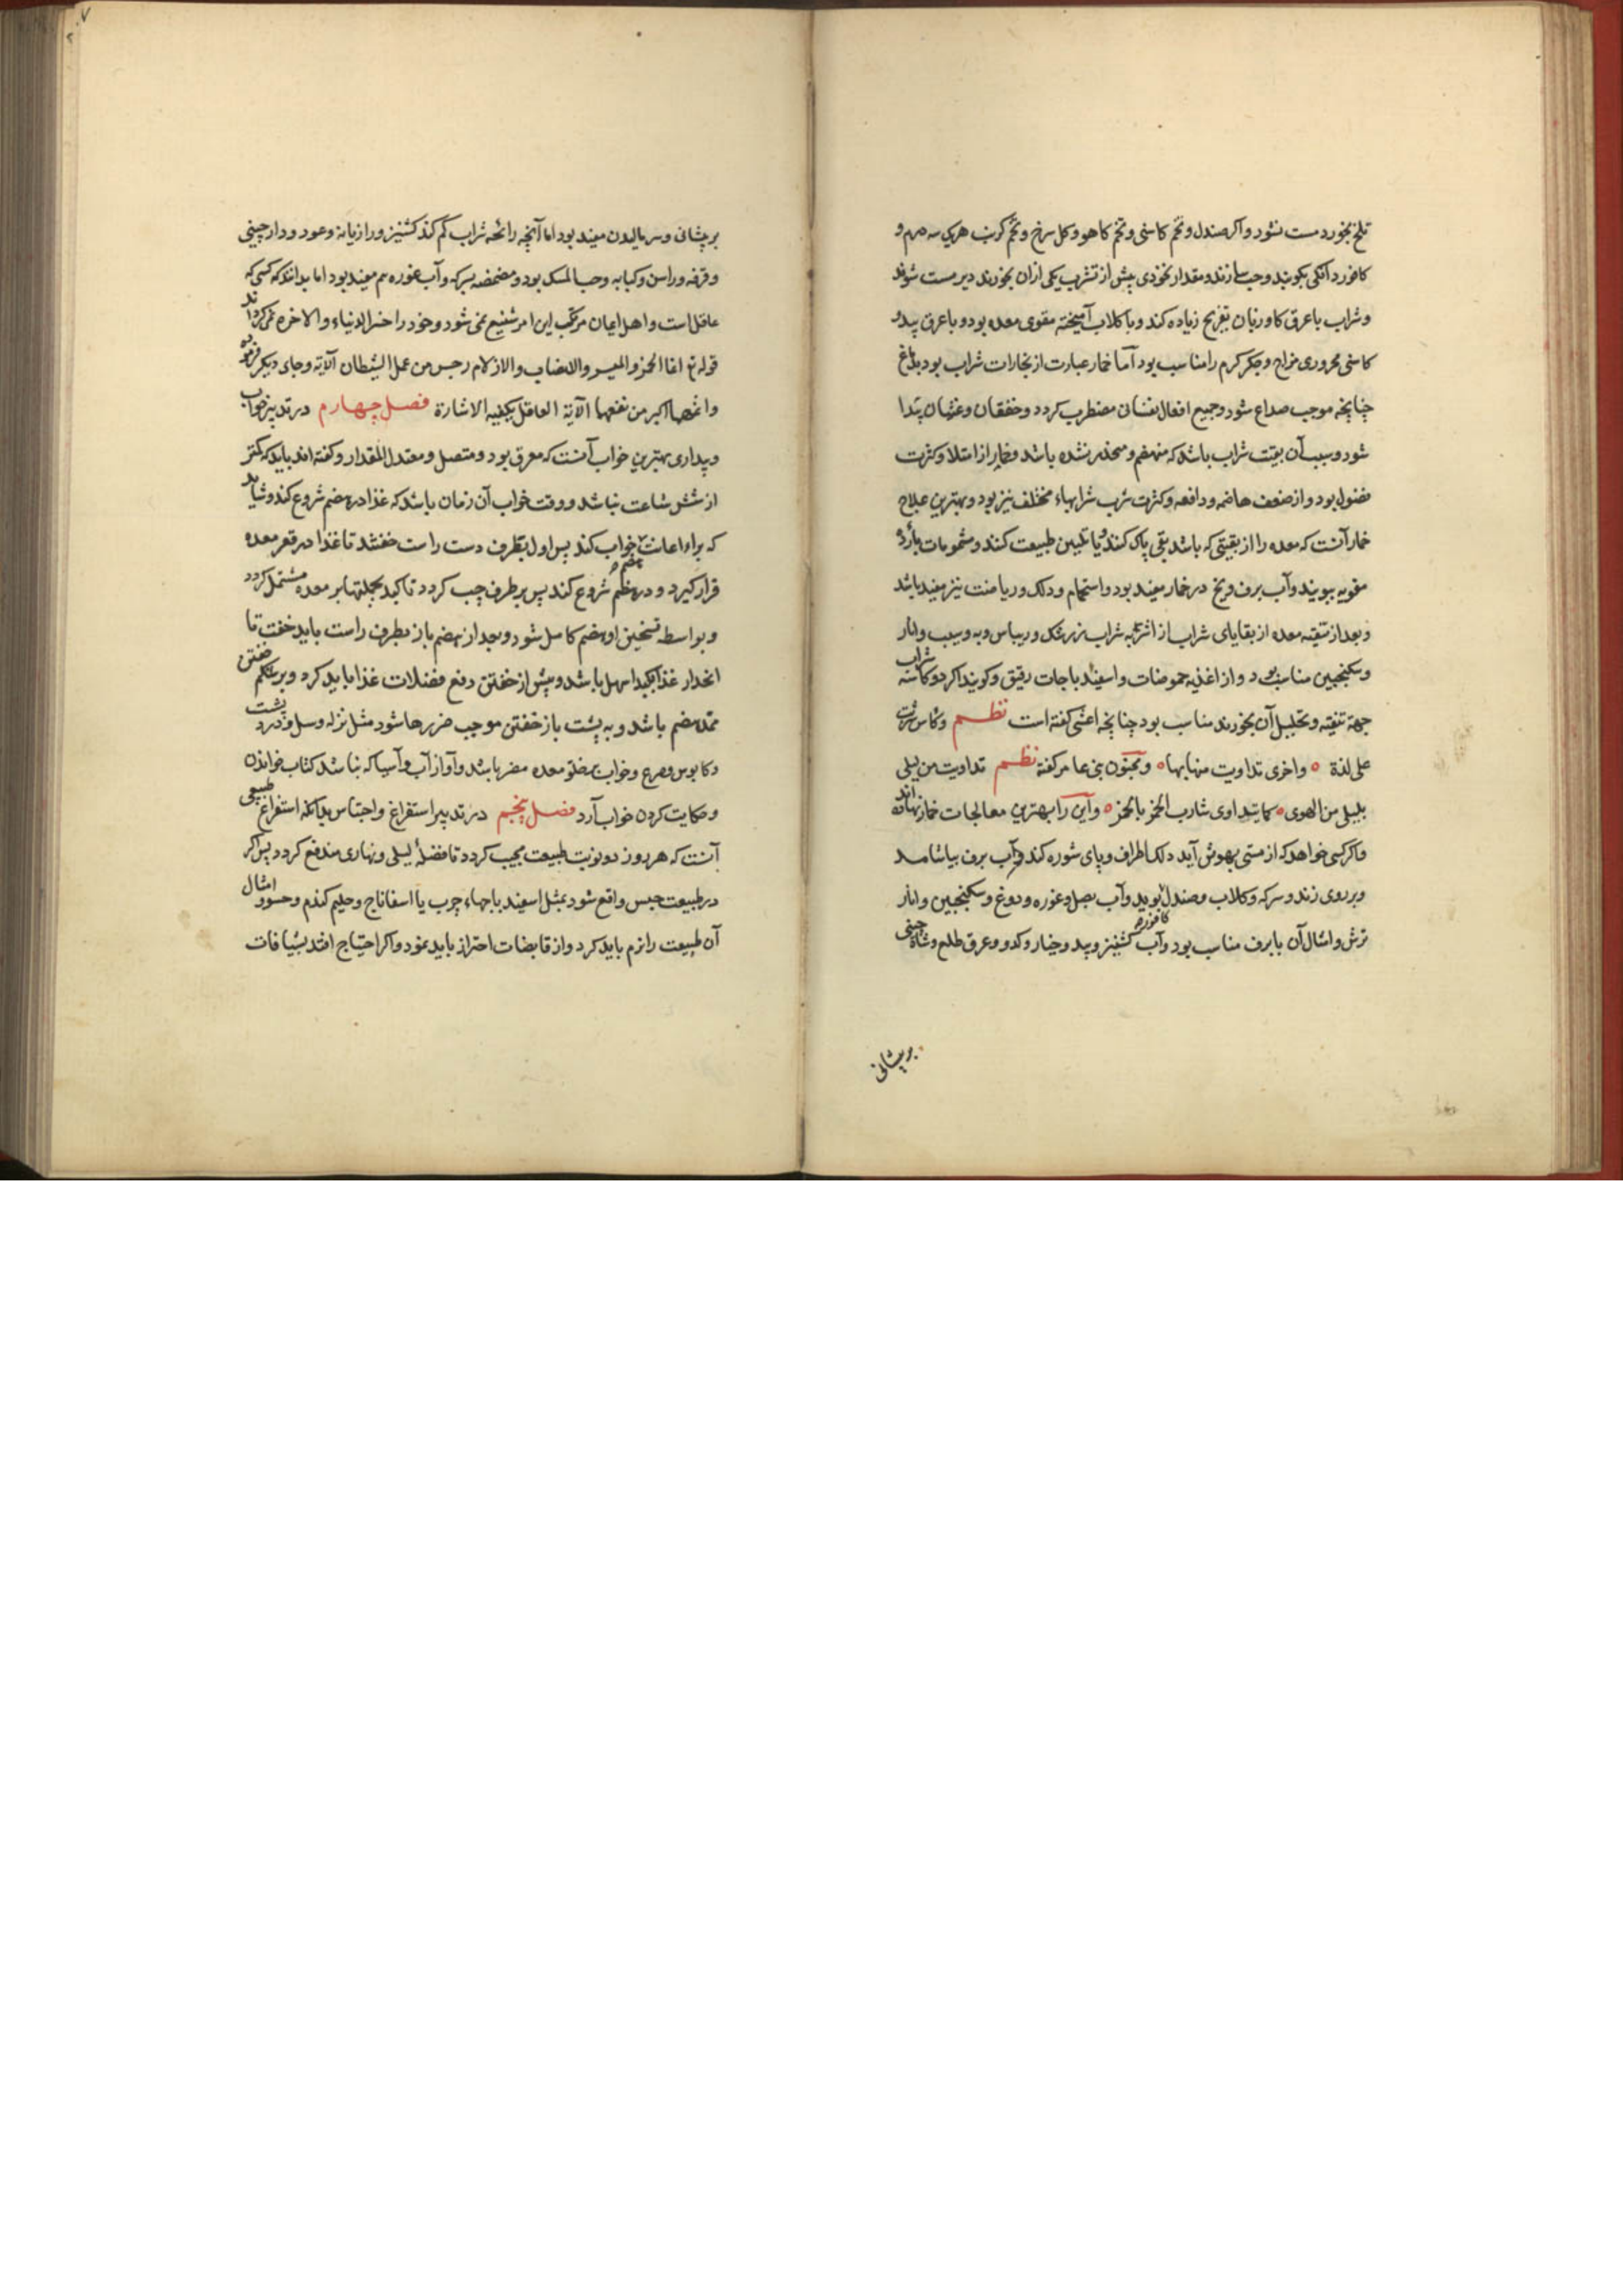 تلخ بخورد مست نشود و اکر صندل و تخم کاسنی و تخم کاهو و کل سرخ و تخم کرنب هریک سه درم و
کافور دانکی بکوبند و حب سازند و مقدار نخودی پیش از تشرب یکی ازان بخورند دیر مست شوند
و شراب با عرق کاوزبان تفریح زیاده کند و با کلاب آمیخته مقوی معده بود و با عرق بید و
کاسنی محروری مزاج و جکر کرم را مناسب بود اما خمار عبارت از بخارات شراب بود بدماغ
چنانچه موجب صداع شود و جمیع افعال نفسانی مضطرب کردد و خفقان و غثیان پیدا
شود و سبب آن بقیت شراب باشد که منهضم و منحدر نشده باشد و خمار از امتلا و کثرت
فضول بود و از ضعف هاضمه و دافعه و کثرت شرب شرابهاء مختلف نیز بود و بهترین علاج
خمار آنست که معده را از بقیتی که باشد بقی پاک کنند و یا تلیین طبیعت کنند و مشمومات بارده
مقویه ببویند و آب برف و یخ در خمار مفید بود و استحمام و دلک و ریاضت نیز مفید باشد
و بعد از تنقیه معده از بقایای شراب از اشربه شراب زرشک و ریباس و به و سیب و انار
و سکنجبین مناسب بود و از اغذیه حموضات و اسفیدباجات رقیق و کویند اکر دو کاسه شراب
جهة تنقیه و تحلیل آن بخورند مناسب بود چنانچه اعشی کفته است نظم وکاس شربت
علی لذة ٥ واخری تداویت منها بها ٥ و مجنون بنی عامر کفته نظم تداویت من لیلی
بلیلی من الهوی ٥ کما یتداوی شارب الخمر بالخمر ٥ و این را بهترین معالجات خمار نهاده اند
و اکر کسی خواهد که از مستی بهوش آید دلک اطراف و پای شوره کند و آب برف بیاشامد
و بر روی زند و سرکه و کلاب و صندل بوید و آب بصل و غوره و دوغ و سکنجبین و انار
ترش و امثال آن با برف مناسب بود و آب کشنیز و بید و خیار و کدو و عرق طلع و کافور
بر پیشانی
بر پیشانی و سر مالیدن مفید بود اما آنچه رائحه شراب کم کند کشنیز و رازیانه و عود و دارچینی
و قرفه و راسن و کبابه و حب المسک بود و مضمضه بسرکه و آب غوره هم مفید بود اما بدانکه کسی که
عاقل است و اهل ایمان مرتکب این امر شنیع نمی شود و خود را خسر الدنیاء والاخره نمی کرداند
قوله تع انما الخمر والمیسر والانصاب والازلام رجس من عمل الشیطان الآیة و جای دیکر فرموده
واثمهما اکبر من نفعهما الآیة العاقل یکفیه الاشارة فصل چهارم در تدبیر خواب
و بیداری بهترین خواب آنست که معرق بود و متصل و معتدل المقدار و کفته اند باید که کمتر
از شش ساعت نباشد و وقت خواب آن زمان باشد که غذا در هضم شروع کند و شاید
که براء اعانت خواب کند پس اول بطرف دست راست خفشد تا غذا در قعر معده
قرار کیرد و در هظم هضم شروع کند پس بر طرف چپ کردد تا کبد بجملتها بر معده مشتمل کردد
و بواسطه تسخین او هضم کامل شود و بعد از هضم باز بطرف راست باید خفت تا
انحدار غذا بکبد اسهل باشد و پیش از خفتن دفع فضلات غذا باید کرد و بر شکم خفتن
ممد هضم باشد و به پشت باز خفتن موجب ضررها شود مثل نزله و سل و درد پشت
و کابوس و صرع و خواب بر خلو معده مضر باشد و آواز آب و آسیا که نباشد کتاب خواندن
و حکایت کردن خواب آرد فصل پنجم در تدبیر استفراغ و احتباس بدانکه استفراغ طبیعی
آنست که هر روز دو نوبت طبیعت مجیب کردد تا فضلهٔ لیلی و نهاری مندفع کردد پس اکر
در طبیعت حبس واقع شود بمثل اسفیدباجهاء چرب یا اسفاناج و حلیم کندم و حسو و امثال
آن طبیعت را نرم باید کرد و از قابضات احتراز باید نمود و اکر احتیاج افتد بشیافات